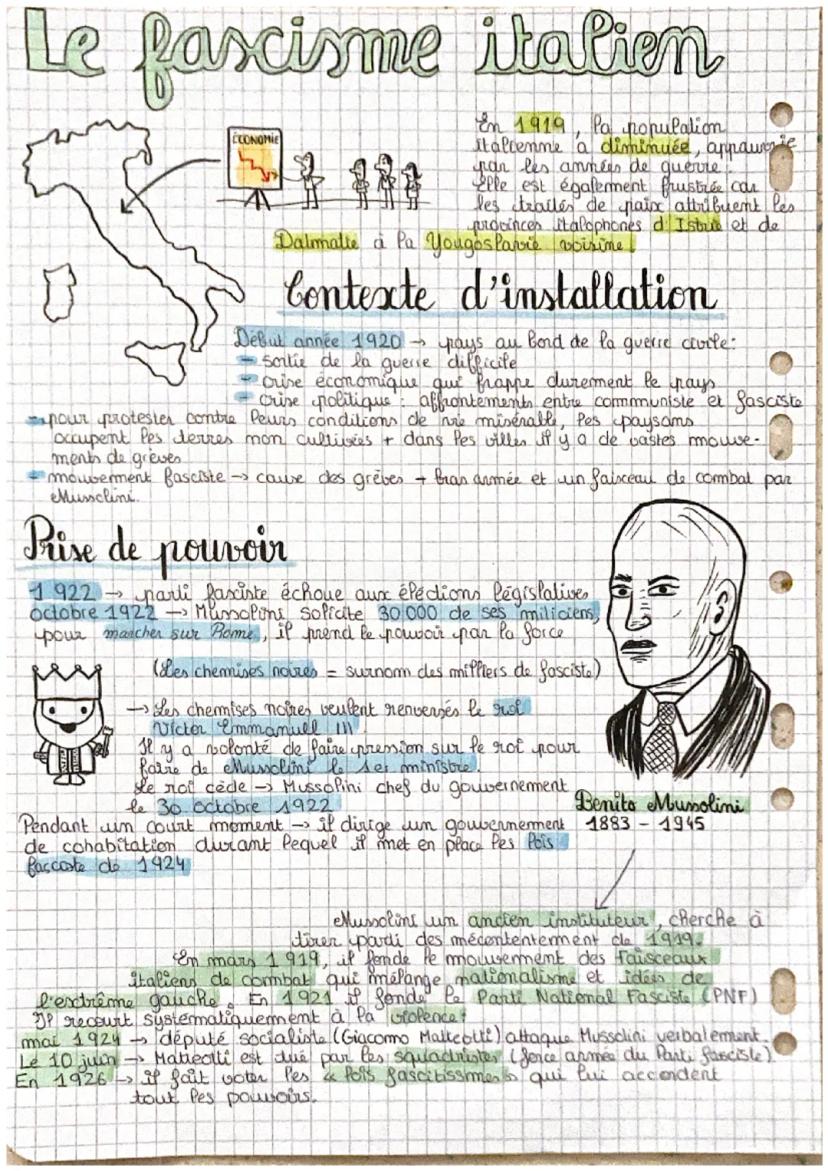 Le fascisme italien
ÉCONOMIE
En 1919, la population
italienne a diminuée, appauvrie
par les années de guerre.
Elle est également frustrée car
les traités de paix attribuent les
provinces italophones d'Istrie et de
Dalmatie à la Yougoslavie voisine.
Contexte d'installation
Début année 1920 → pays au bord de la guerre civile:
- sortie de la guerre difficile
- crise économique qui frappe durement le pays
- crise politique : affrontements entre communiste et fasciste
- pour protester contre leurs conditions de vie misérable, les paysans
occupent les terres non cultivées + dans les villes il y a de vastes mouve-
ments de grèves
- mouvement fasciste → cause des grèves + bras armée et un faisceau de combat par
Mussolini.
Prise de pouvoir
1 922 → parti fasciste échoue aux élections législatives
octobre 1922 → Mussolini solicite 30 000 de ses miliciens,
pour marcher sur Rome, il prend le pouvoir par la force
(Les chemises noires = surnom des milliers de fasciste)
→ Les chemises noires veulent renversés le roi
Victor Emmanuell III
Il y a volonté de faire pression sur le roi pour
faire de Mussolini le 1er ministre.
Le roi cède → Mussolini chef du gouvernement
le 30 octobre 1922
Benito Mussolini
1883 - 1945
Pendant un court moment → il dirige un gouvernement
de cohabitation durant lequel il met en place les lois
fasciste de 1924
Mussolini un ancien instituteur, cherche à
tirer parti des mécontentement de 1919.
En mars 1 919, il fonde le mouvement des faisceaux
italiens de combat qui mélange nationalisme et idées de
l'extrême gauche. En 1921 il fonde le Parti National Fasciste (PNF)
Il recourt systématiquement à la violence:
mai 1924 → député socialiste (Giacomo Matteotti) attaque Mussolini verbalement.
Le 10 juin → Matteotti est tué par les squadristes (force armée du Parti fasciste)
En 1926 → il fait voter les « lois fascitissimes » qui lui accordent
tout les pouvoirs.